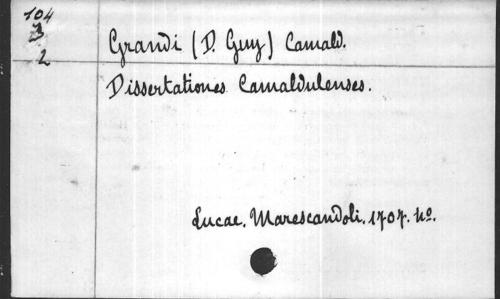 104
B
2
Grandi (D. Guy) Camald.
Dissertationes Camaldulenses.
Lucae. Marescandoli. 1707. 4o.